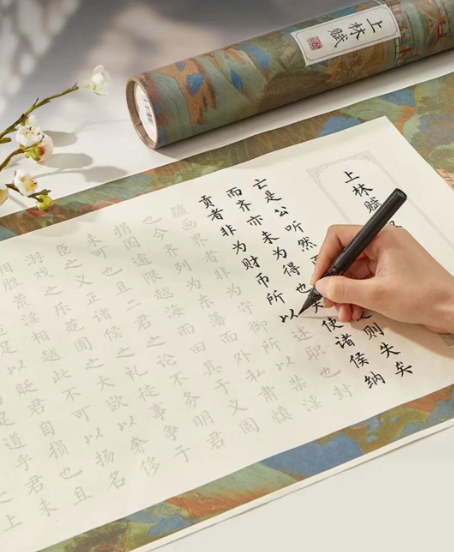 上林赋
上林赋
亡是公听然而
则失矣
而齐亦未为得也夫使诸侯纳
贡者非为财币所以述职也封
疆画界者非为守御所以禁淫
也今齐列为东藩而外私肃慎
捐国逾限越海而田其于义固
未可也且二君之论不务明君
臣之义正诸侯之礼徒事争于
游戏之乐苑囿之大欲以奢侈
相胜荒淫相越此不可以扬名
足以贬君自损也且
足道乎君未
上